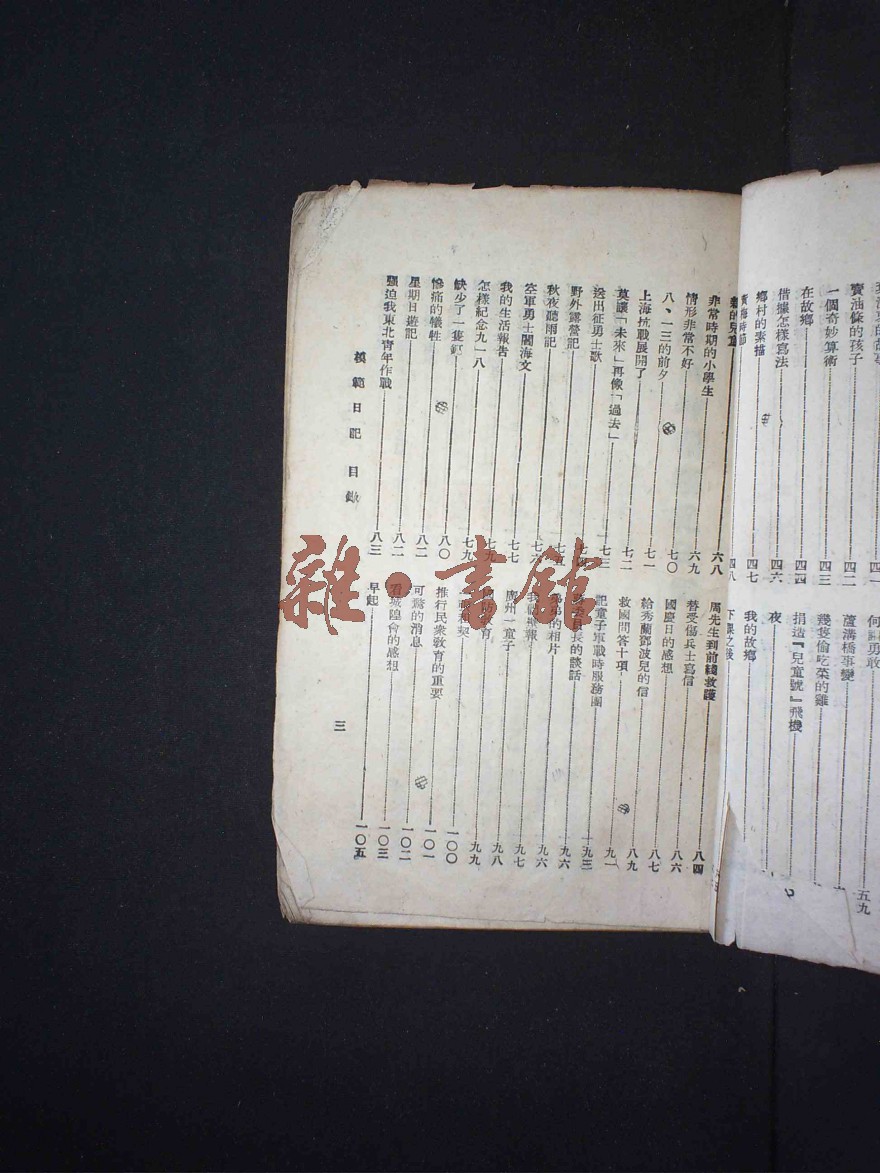 賣油條的孩子
一個奇妙算術……四二
在故鄉……四三
借據怎樣寫法……四四
鄉村的素描……四六
黃梅時節……四七
四八
何勇敢……五九
蘆溝橋事變
幾隻偷吃菜的雞
捐造『兒童號』飛機
夜
我的故鄉
下課之後
非常時期的小學生……六八
情形非常不好……六九
八、一三的前夕……七〇
上海抗戰展開了……七一
莫讓「未來」再像「過去」……七二
送出征勇士歌……七三
野外露營記
秋夜聽雨記
空軍勇士閻海文
我的生活報告……七七
怎樣紀念九一八
缺少了一隻……七九
慘痛的犧牲……八〇
星期日遊記……八二
強迫我東北青年作戰……八二
八三
周先生到前綫救護……八四
替受傷兵士寫信
國慶日的感想……八六
給秀蘭鄧波兒的信……八七
救國問答十項……八九
記童子軍戰時服務團……九一
長的談話……九三
的相片……九六
報……九六
廣州一童子……九七
教育……九八
九九
推行民衆教育的重要……一〇〇
可驚的消息……一〇一
看城隍會的感想……一〇二
早起……一〇三
一〇五
模範日記 目錄
三
雜·書館